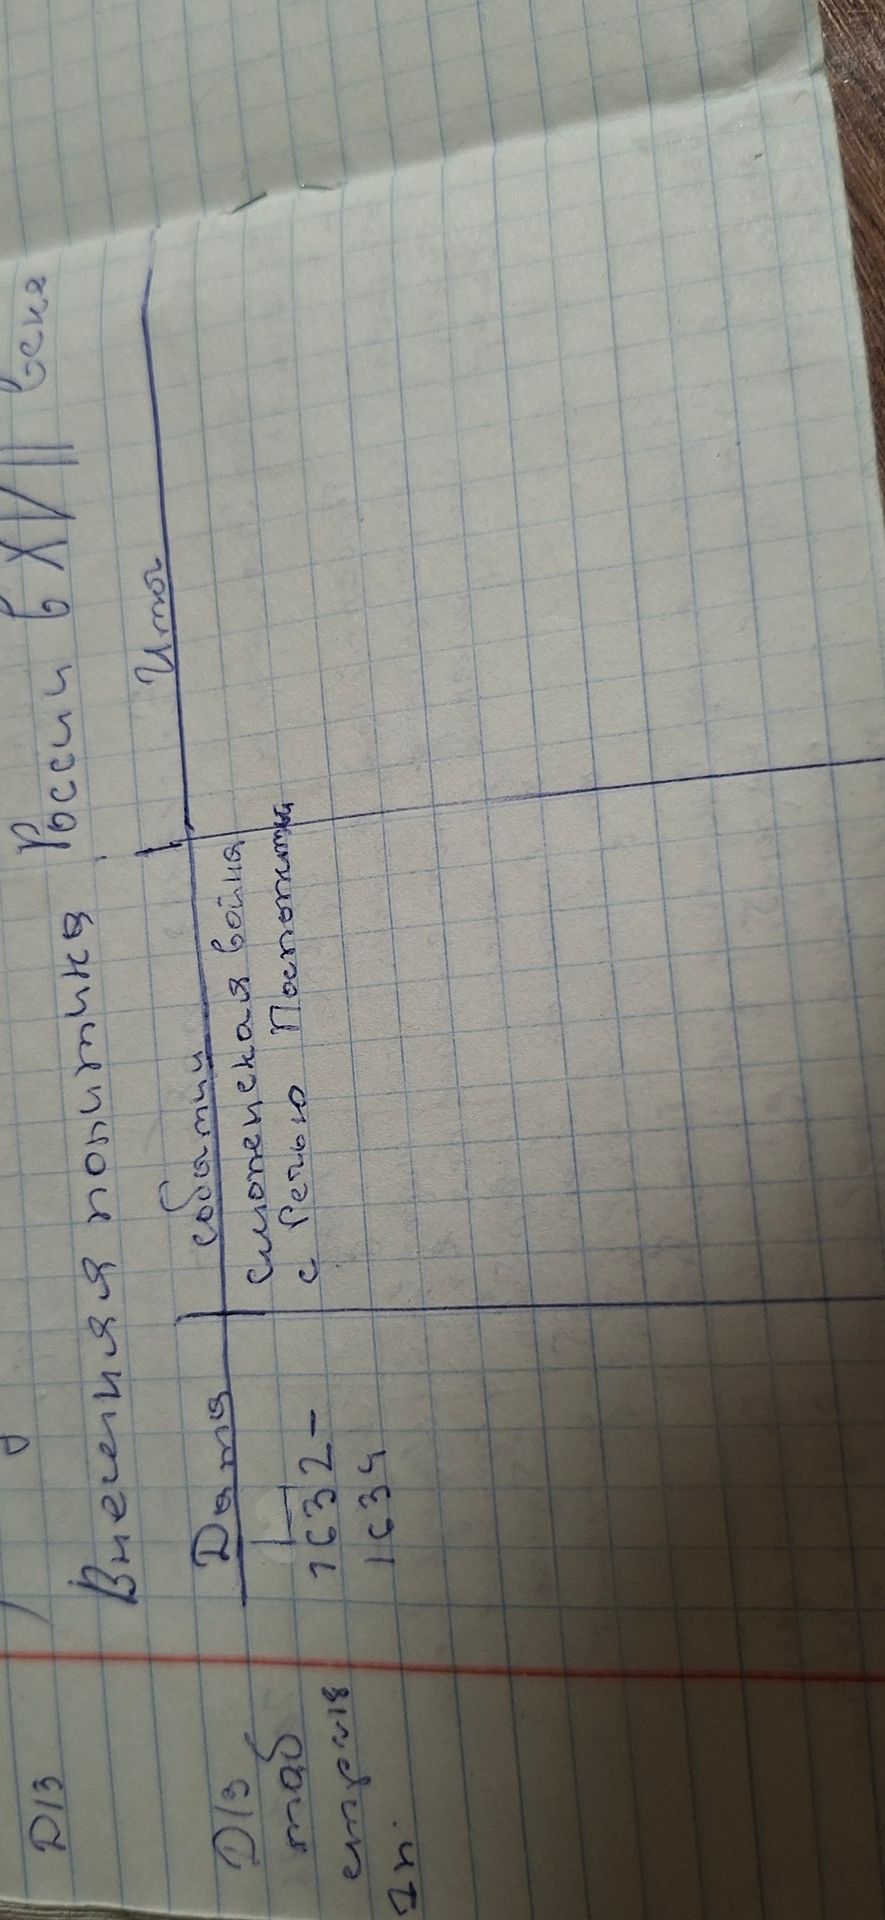 Д/З
Внешняя политика России в XVII века
Дата события Итог
Д/З
таб
1632-
1634
Смоленская война
с Речью Посполитой